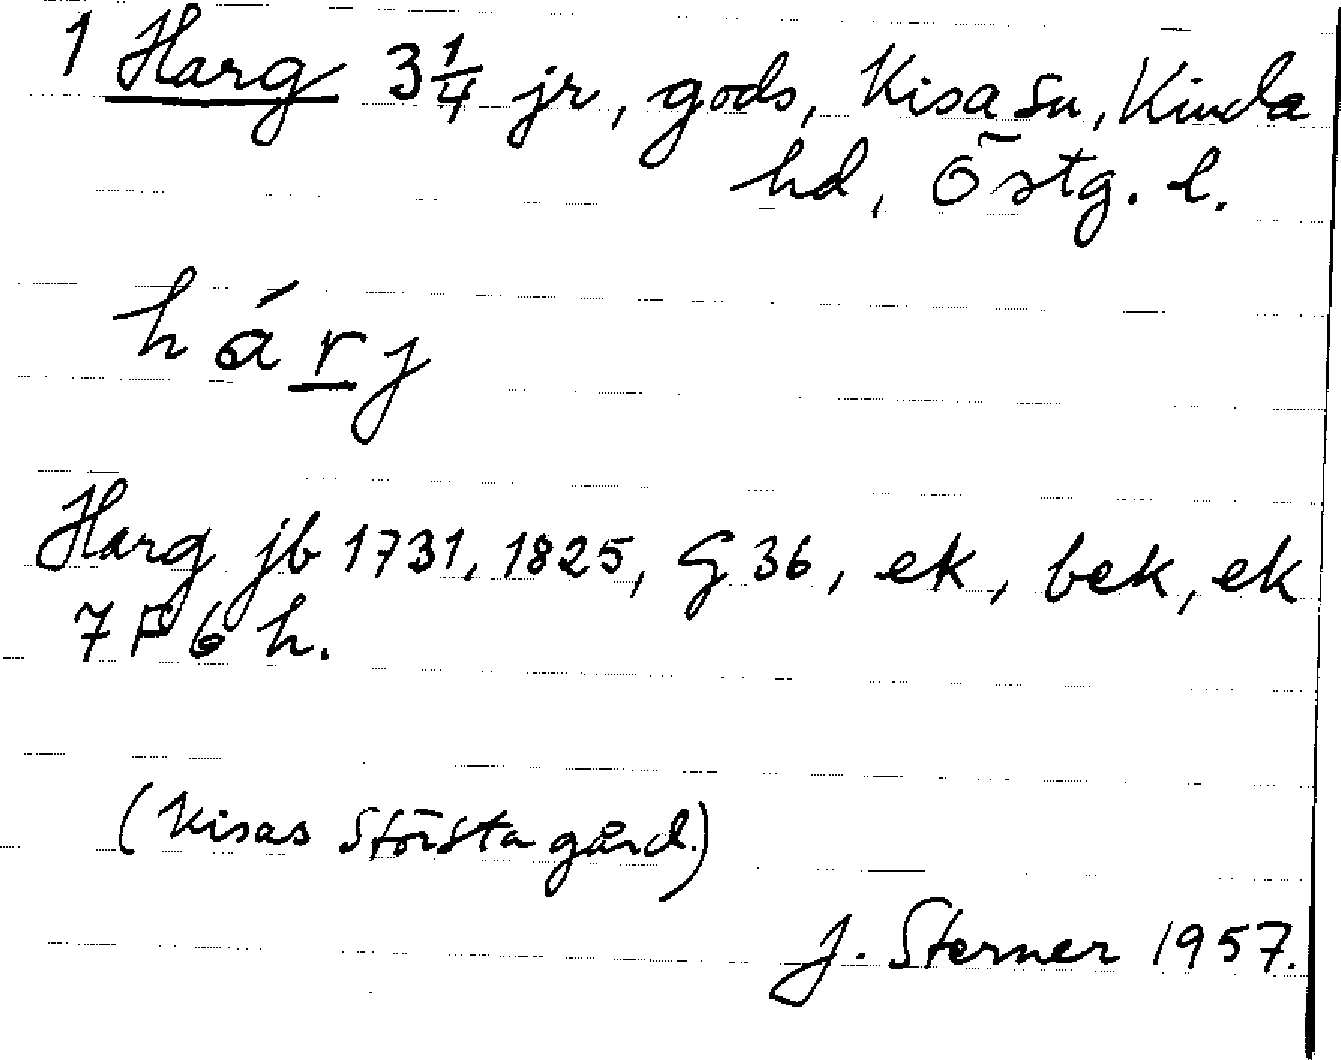 1 Harg 3 1/4 jr, gods, Kisa sn, Kinda
hd, Östg. l.
hárj
Harg jb 1731, 1825, G 36, ek, bek, ek
7 F 6 h.
(Kisas största gård.)
J. Sterner 1957.